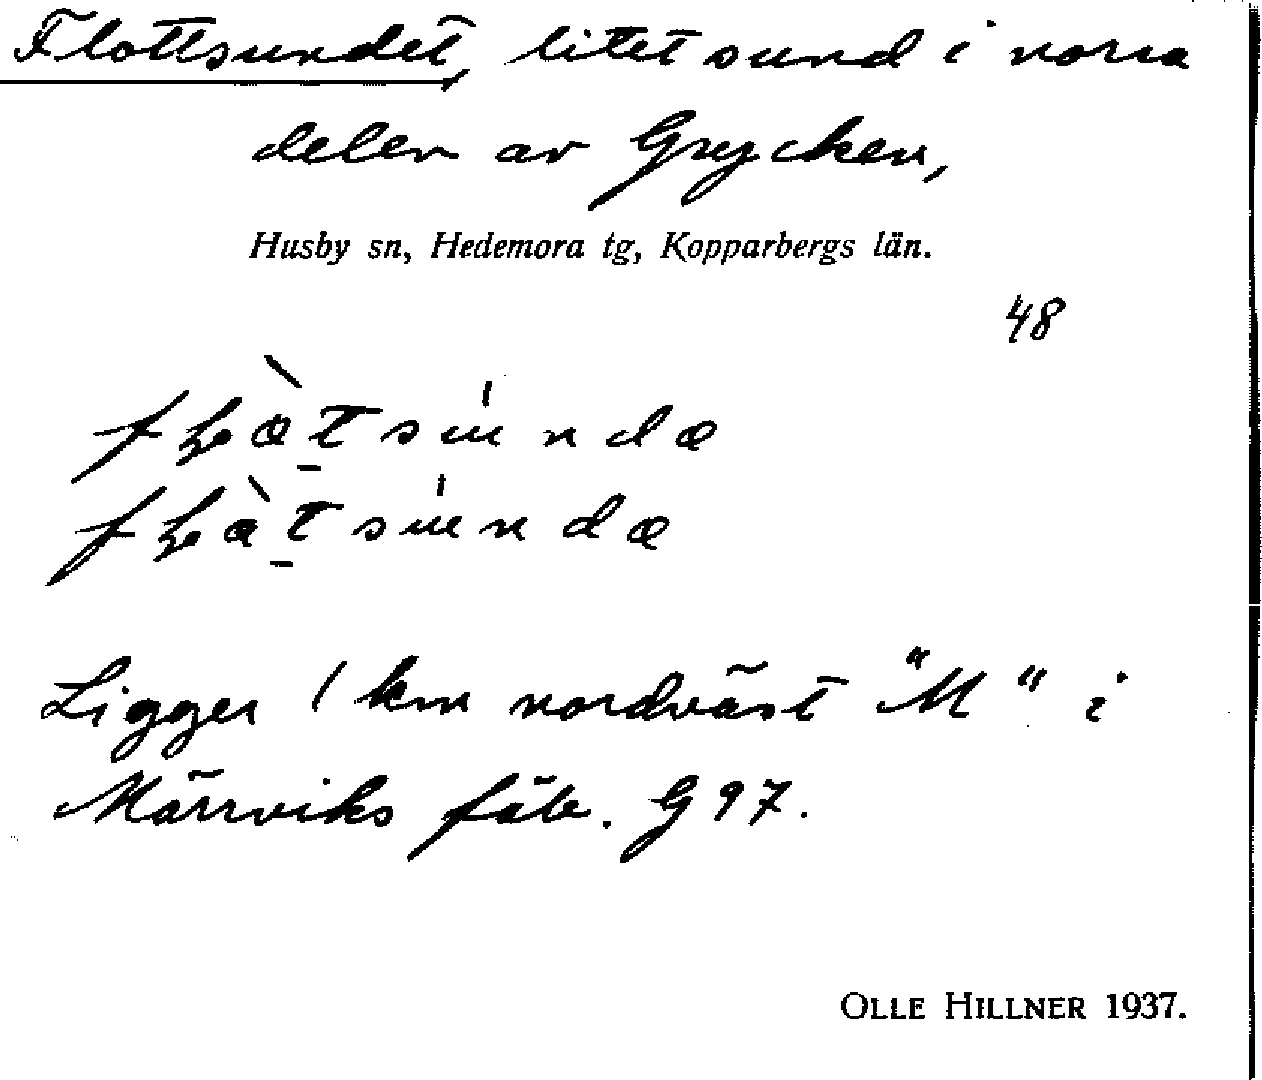 Flottsundet, litet sund i norra
delen av Grycken,
Husby sn, Hedemora tg, Kopparbergs län.
48
Ligger 1 km nordväst "M" i
Märrviks fäb. G 97.
OLLE HILLNER 1937.